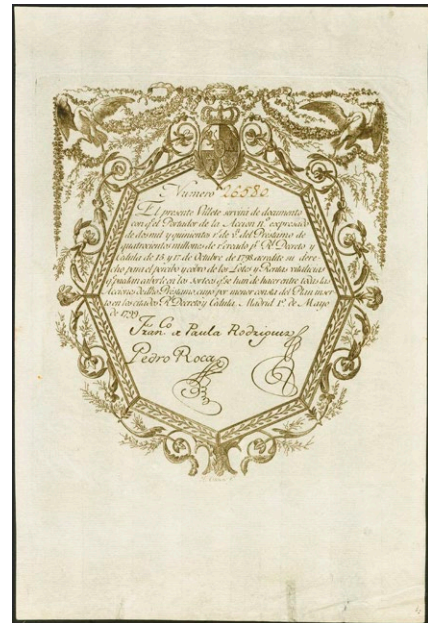 Numero 26580
El presente Villete servirá de documento
con q.e el Portador de la Accion n.o expresado
de dos mil y quinientos r.s de v.n del Prestamo de
quatrocientos millones de creado p.r R. Decreto y
Cedula de 15. y 17. de Octubre de 1798 acredite su dere-
cho para el percibo y cobro de los Lotes y Rentas vitalicias
q.e puedan caberle en los sorteos q.e se han de hacer entre todas las
Acciones de dicho Prestamo, cuyo por menor consta del Plan inser-
to en los citados R. Decreto y Cedula. Madrid 1.o de Mayo
de 1799
Fran.co de Paula Rodriguez
Pedro Roca